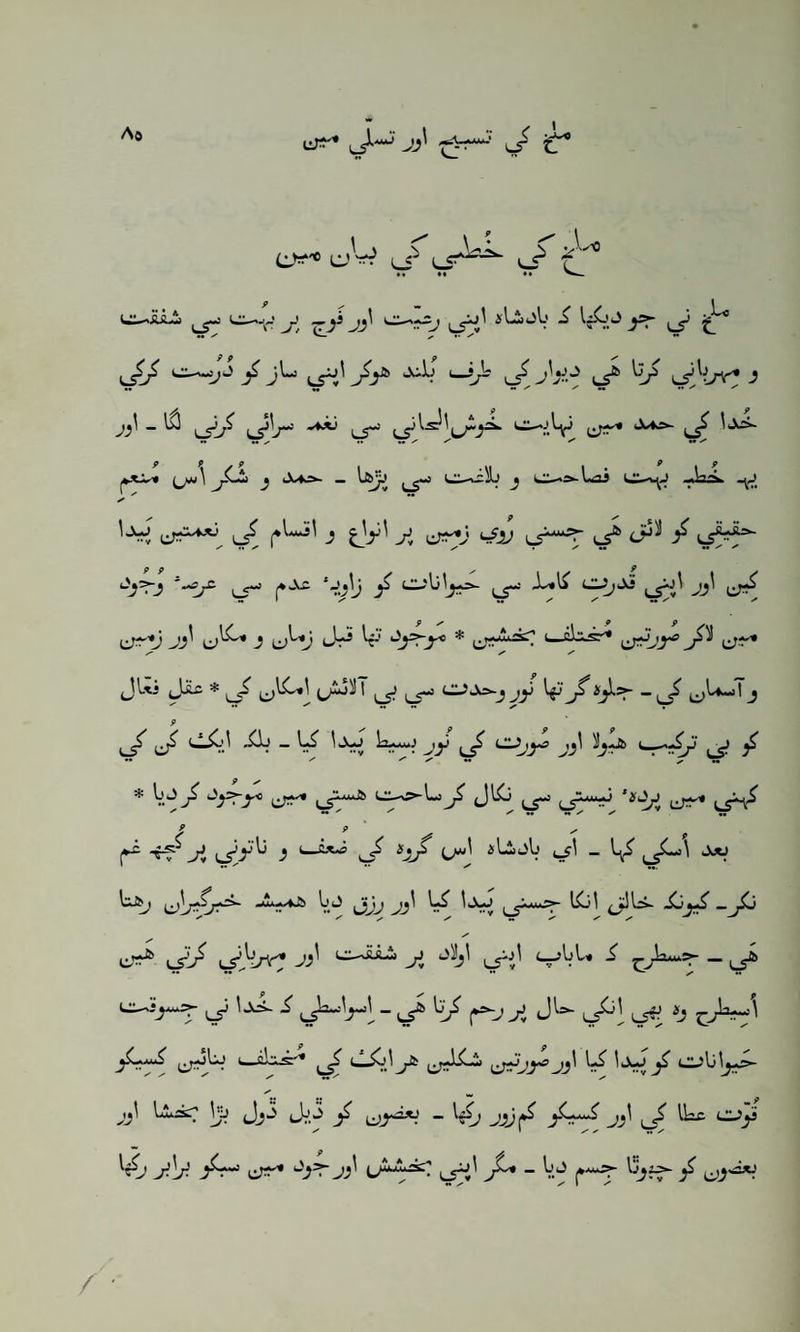 ٨٥
ملخ کی تسبیح اور تسلی میں
ملخ کی خطبی کی بیان میں
ملخ نی جو دیکھا کہ بادشاہ اپنی رعیت اور فوج پر بہت سی شفقت
و مہربانی کرتا ہی دیوار کی طرف بلند ہوکر اپنی ساز کو درست کرکی
خدا کی حمد میں نہایت خوش‌الحانی سی نغمہ سرائی کرنی لگا - اور
یہہ خطبہ نہایت فصاحت و بلاغت سی پڑھا - حمد و شکر اس منعم
حقیقی کو لائق ہی جسنی روی زمین پر انواع و اقسام کی نعمتیں پیدا
کیں اور اپنی قدرت کاملہ سی حیوانات کو زاویۂ عدم سی عرصۂ وجود
میں لاکر صورتیں مختلف بخشیں * موجود تھا قبل زمان و مکان اور زمین
و آسمان کی - جلوہ گر تھا نور وحدت سی بی آلائش امکان کی * عقل فعال
کو بی ترکیب ہیولا اور صورت کی نور بسیط سی پیدا کیا - بلکہ ایک کن کی
کہنی میں پردۂ نیستی سی نکال کر ساحت ہستی میں موجود کر دیا *
بعد اسکی کہا - ای بادشاہ اس گروہ کی ضعف و ناتوانی پر کچھہ غم
نکر - کیونکہ خالق انکا جسنی پیدا کیا اور رزق دیا ہمیشہ خبرگیران رہتا
ہی - جسطرح کہ ماباپ اپنی اولاد پر شفقت اور مہربانی کرتی ہیں
اسیطرح وہ بھی انکی حال پر رحم کرتا ہی - اسواسطی کہ خدا نی جسوقت
حیوانات کو پیدا کیا اور صورتیں شکلیں ہر ایک کی مختلف بنائیں کسیکو
قوت عطا کی اور کسیکو کمزور رکھا - بعضوں کو ڈیل ڈول بڑا بخشا اور
بعضوں کو چھوٹا جسم دیا - مگر اپنی بخشش اور جود میں سبکو برابر رکھا